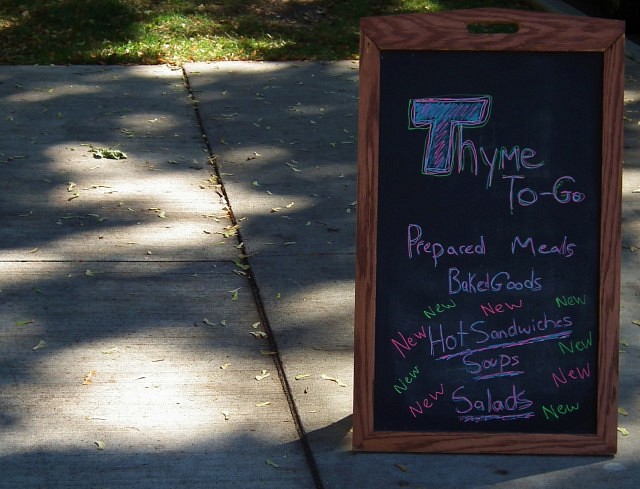 Thyme
To-Go
Prepared Meals
Baked Goods
New New New
New Hot Sandwiches New
Soups
New New
New Salads New